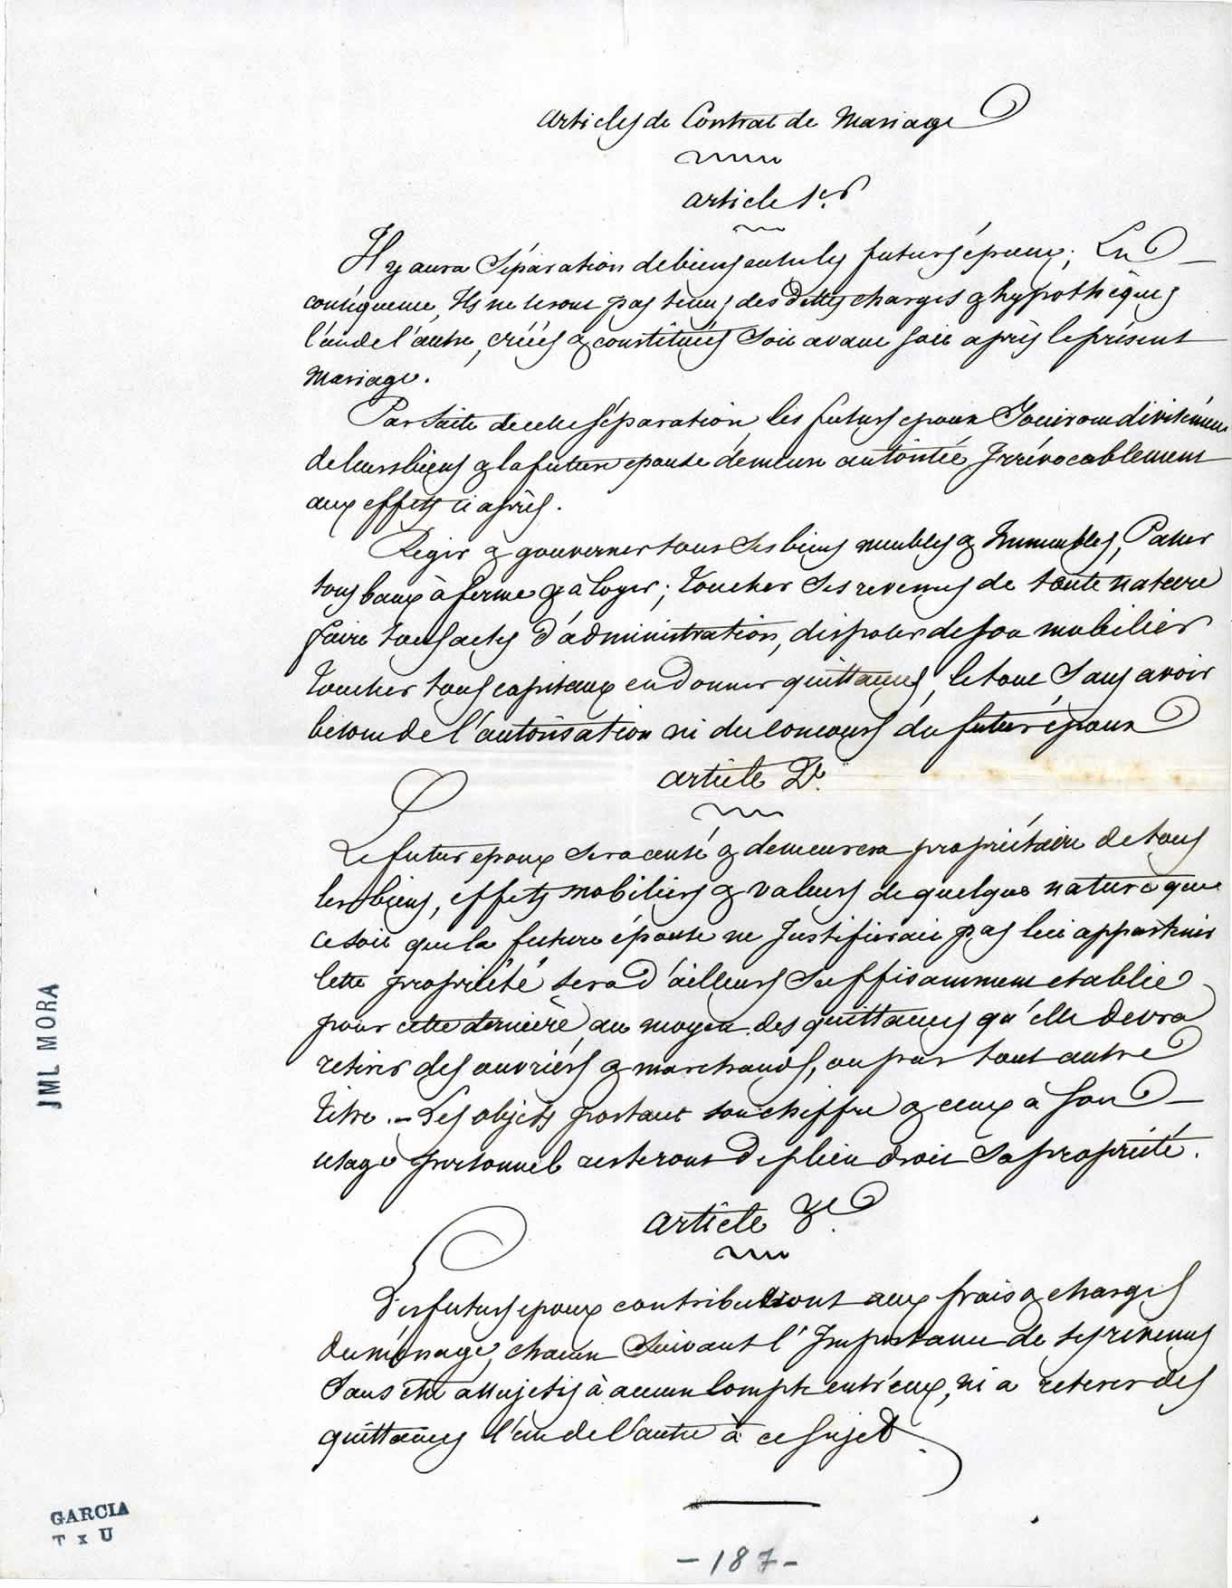 Articles de Contrat de Mariage
Article 1er
Il y aura Séparation de biens entre les futurs époux; En
conséquence, Ils ne seront pas tenus des dettes charges & hypothèques
l'un de l'autre, créés & constitués Soit avant soit après le présent
Mariage.
Par suite de cette séparation, les futurs epoux Jouiront divisément
de leurs biens & la future epouse demeure autorisée Irrévocablement
aux effets ci après.
Régir & gouverner tous Ses biens meubles & Immeubles, Passer
tous baux à ferme & à loyer; Toucher Ses revenus de toute nature
faire tous actes d'administration, disposer de son mobilier
Toucher tous capitaux en donner quittances, le tout Sans avoir
besoin de l'autorisation ni du concours du futur époux
Article 2e.
Le futur epoux Sera censé & demeurera propriétaire de tous
les biens, effets mobiliers & valeurs de quelque nature que
ce soit que la future épouse ne Justifierait pas lui appartenir
Cette propriété sera d'ailleurs Suffisamment etablie
pour cette dernière, au moyen des quittances qu'elle devra
retirer des ouvriers & marchands, ou par tout autre
titre. - Les objets portant son chiffre & ceux à Son
usage personnel resteront De plein droit Sa propriété.
Article 3e.
Les futurs epoux contribueront aux frais & charges
du ménage, chacun Suivant l'Importance de ses revenus
Sans être assujetis à aucun Compte entr'eux, ni a retirer des
quittances l'un de l'autre à ce Sujet.
- 187 -
JML MORA
GARCIA
T x U